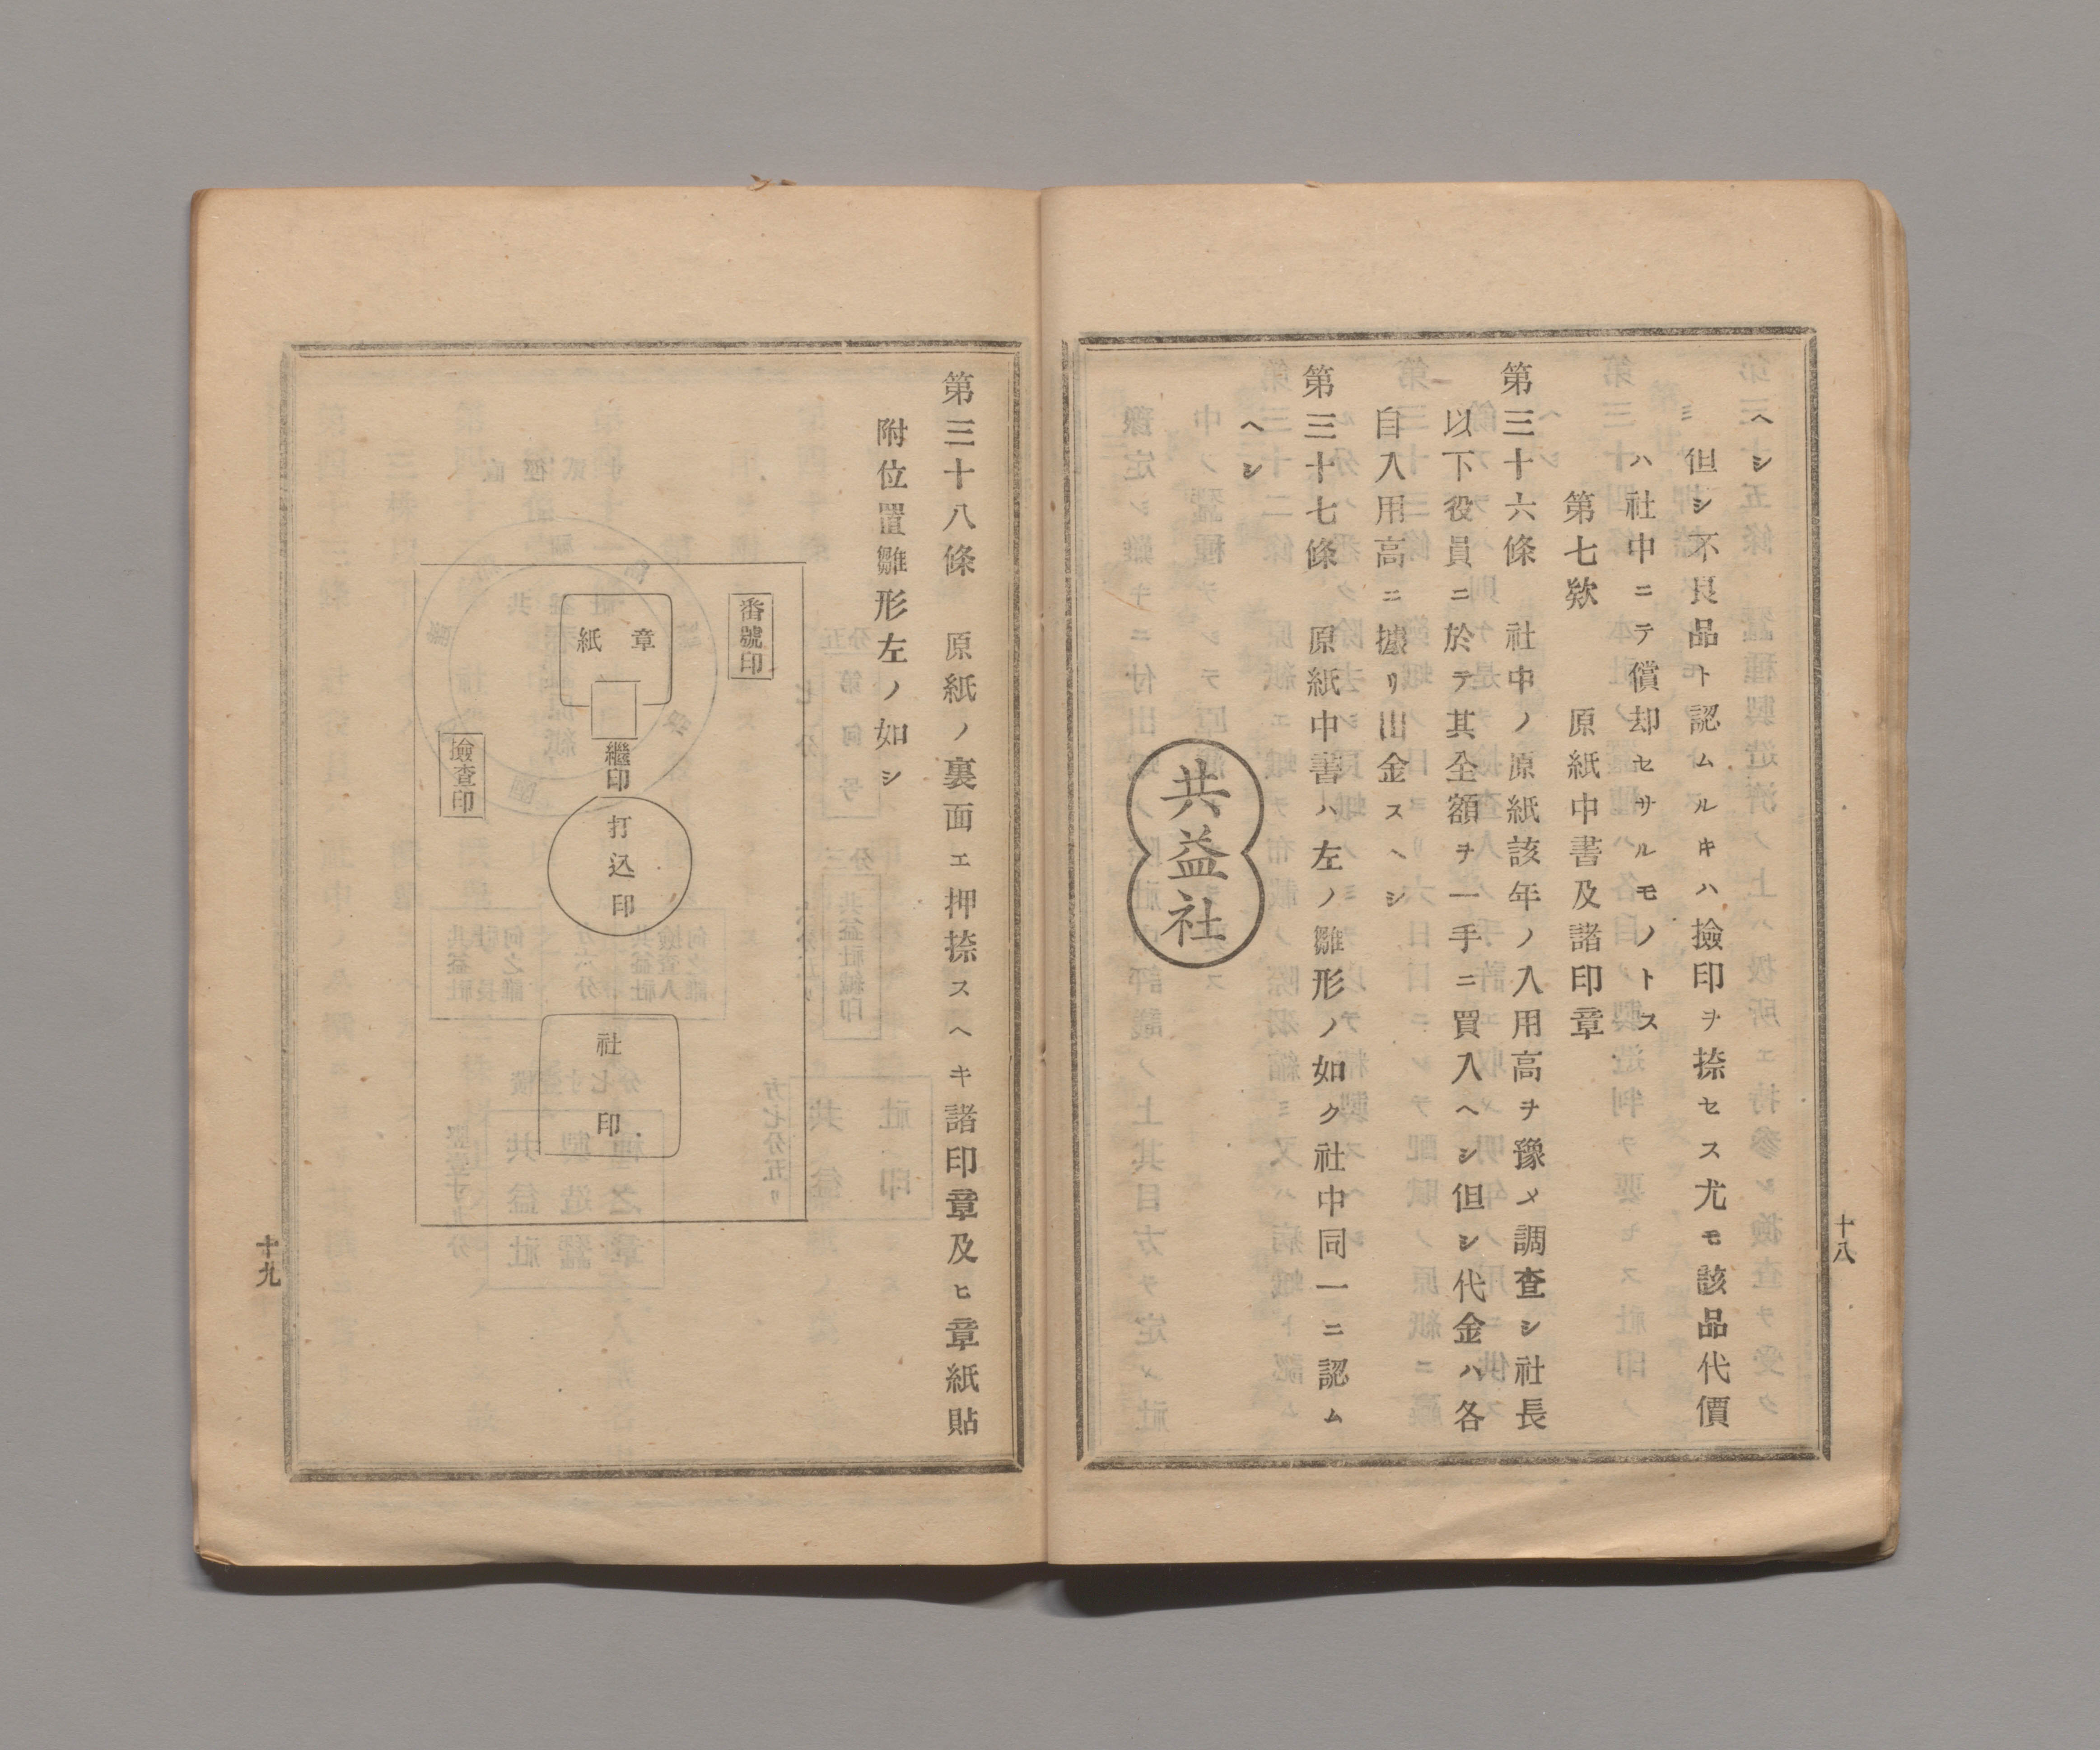 ヘシ
但シ不良品ト認ムルキハ撿印ヲ捺セス尤モ該品代價
ハ社中ニテ償却セサルモノトス
第七欵　原紙中書及諸印章
第三十六條　社中ノ原紙該年ノ入用高ヲ豫メ調査シ社長
以下役員ニ於テ其全額ヲ一手ニ買入ヘシ但シ代金ハ各
自入用高ニ據リ出金スヘシ
第三十七條　原紙中書ハ左ノ雛形ノ如ク社中同一ニ認ム
ヘシ
共益社
十八
第三十八條　原紙ノ裏面エ押捺スヘキ諸印章及ヒ章紙貼
附位置雛形左ノ如シ
番號印
章紙
繼印
撿査印
打込印
社印
十九